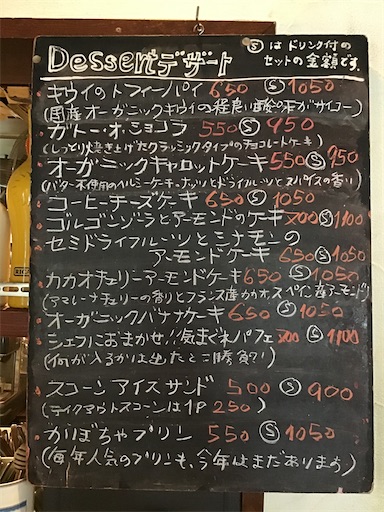 Dessertデザート
Ⓢはドリンク付の
セットの金額です。
キウイのトフィーパイ 650 Ⓢ 1050
(国産オーガニックキウイの程良い酸味がサイコー)
ガトー・オ・ショコラ 550 Ⓢ 950
(しっとり焼き上げたクラシックタイプのチョコレートケーキ)
オーガニックキャロットケーキ 550 Ⓢ 950
(バター不使用のヘルシーケーキ。ナッツとドライフルーツとスパイスの香り)
コーヒーチーズケーキ 650 Ⓢ 1050
ゴルゴンゾーラとアーモンドのケーキ 700 Ⓢ 1100
セミドライフルーツとシナモンの
アーモンドケーキ 650 Ⓢ 1050
カカオチェリーアーモンドケーキ 650 Ⓢ 1050
(アマレーナチェリーの香りとフランス産カカオ、スペイン産アーモンド)
オーガニックバナナケーキ 650 Ⓢ 1050
シェフにおまかせ!!気まぐれパフェ 700 Ⓢ 1100
(何が入るかは出たとこ勝負!?)
スコーンアイスサンド 500 Ⓢ 900
(テイクアウトスコーンは1P 250)
かぼちゃプリン 550 Ⓢ 1050
(毎年人気のプリンも、今年はまだあります)